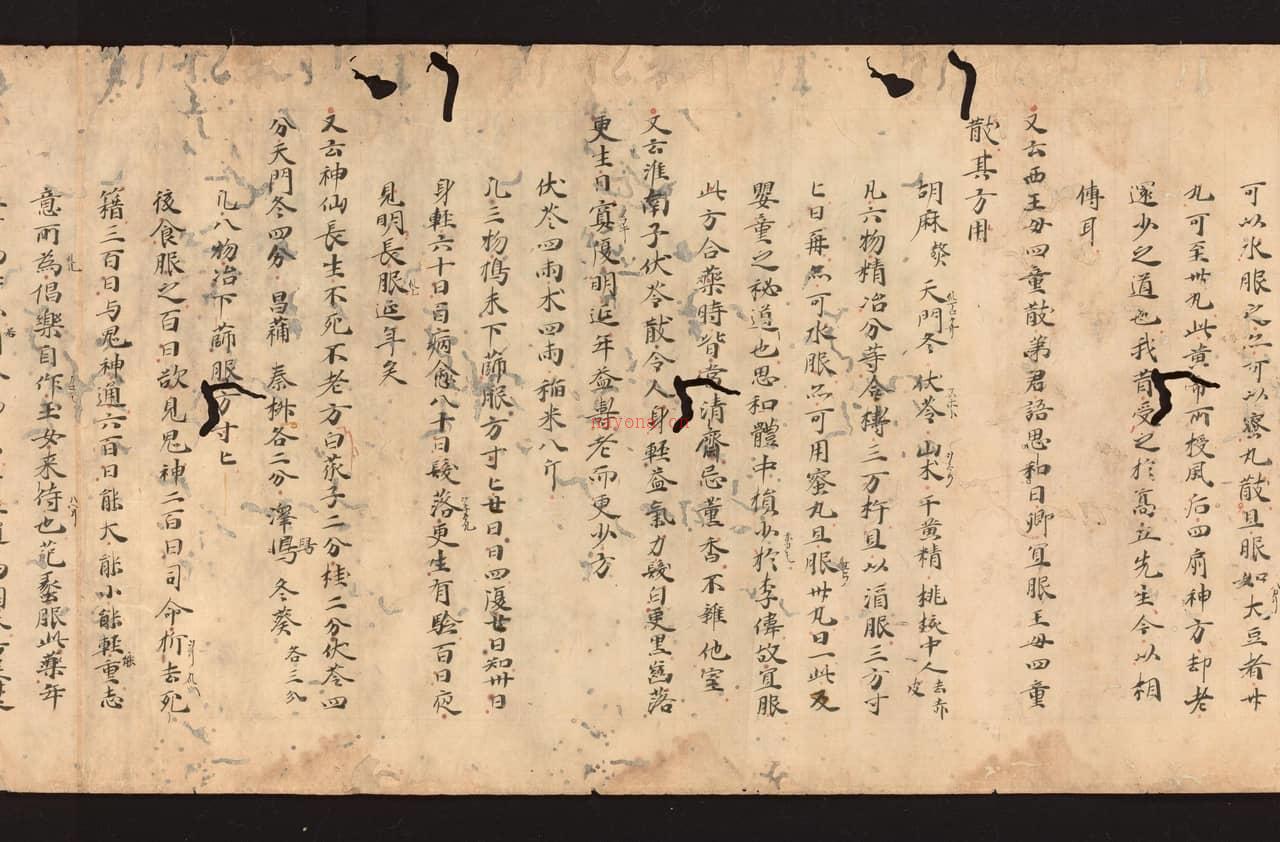 可以水服之亦可以蜜丸散旦服如大豆者廿
丸可至卅丸此黄帝所授風后四扇神方却老
還少之道也我昔受之於高丘先生令以相
傳耳
又云西王母四童散第君語思和曰卿宜服王母四童
散其方用
胡麻 天門冬 伏苓 山朮 干黄精 桃核中人去赤皮
凡六物精冶分等合擣三万杵旦以酒服三方寸
匕日再亦可水服亦可用蜜丸旦服卅丸日一此
嬰童之秘道也思和體中損少於李偉故宜服
此方合藥時皆當清齋忌薰香不雜他室
又云淮南子伏苓散令人身輕益氣力髮白更黒齒落
更生目冥復明延年益壽老而更少方
伏苓四兩朮四兩稲米八斤
凡三物擣末下篩服方寸匕廿日日四復廿日知卅日
身輕六十日百病愈八十日髮落更生有驗百日夜
見明長服延年矣
又云神仙長生不死不老方白菰子二分桂二分伏苓四
分天門冬四分 昌蒲 秦桝各二分 澤鳴 冬葵各三分
凡八物冶下篩服方寸匕
後食服之百日欲見鬼神二百日司命折去死
籍三百日与鬼神通六百日能大能小能軽重志
意所為倡樂自作玉女来侍也范蠡服此藥年
nayona.cn